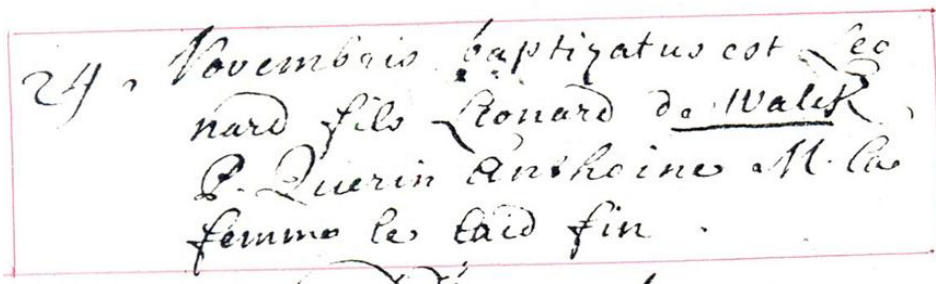 24. Novembris baptizatus est Leo
nard fils Leonard de Walek
P. Querin Anthoine M. la
femme le taid fin.